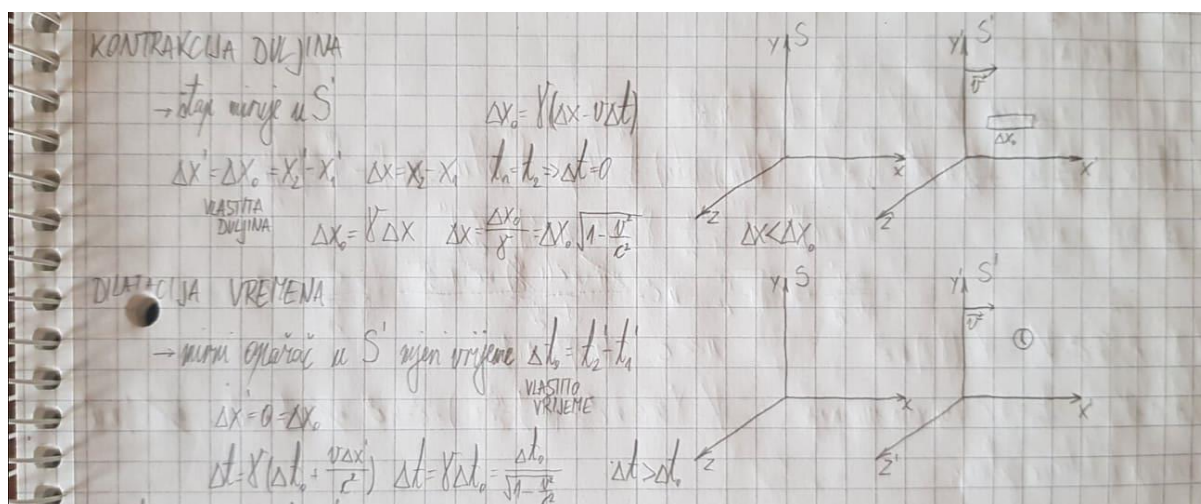 KONTRAKCIJA DULJINA
→ štap miruje u S'
Δx₀ = γ(Δx - vΔt)
Δx' = Δx₀ = x₂' - x₁' Δx = x₂ - x₁ t₁ = t₂ ⇒ Δt = 0
VLASTITA
DULJINA
Δx₀ = γΔx Δx = Δx₀/γ = Δx₀ √(1 - v²/c²) Δx < Δx₀
y S
x
z
y' S'
v⃗
Δx₀
x
z
DILATACIJA VREMENA
→ mirni opažač u S' mjeri vrijeme Δt₀ = t₂' - t₁'
VLASTITO
VRIJEME
Δx' = 0 = Δx₀
Δt = γ(Δt₀ + vΔx'/c²) Δt = γΔt₀ = Δt₀/√(1 - v²/c²) Δt > Δt₀
y S
x
z
y' S'
v⃗
x'
z'